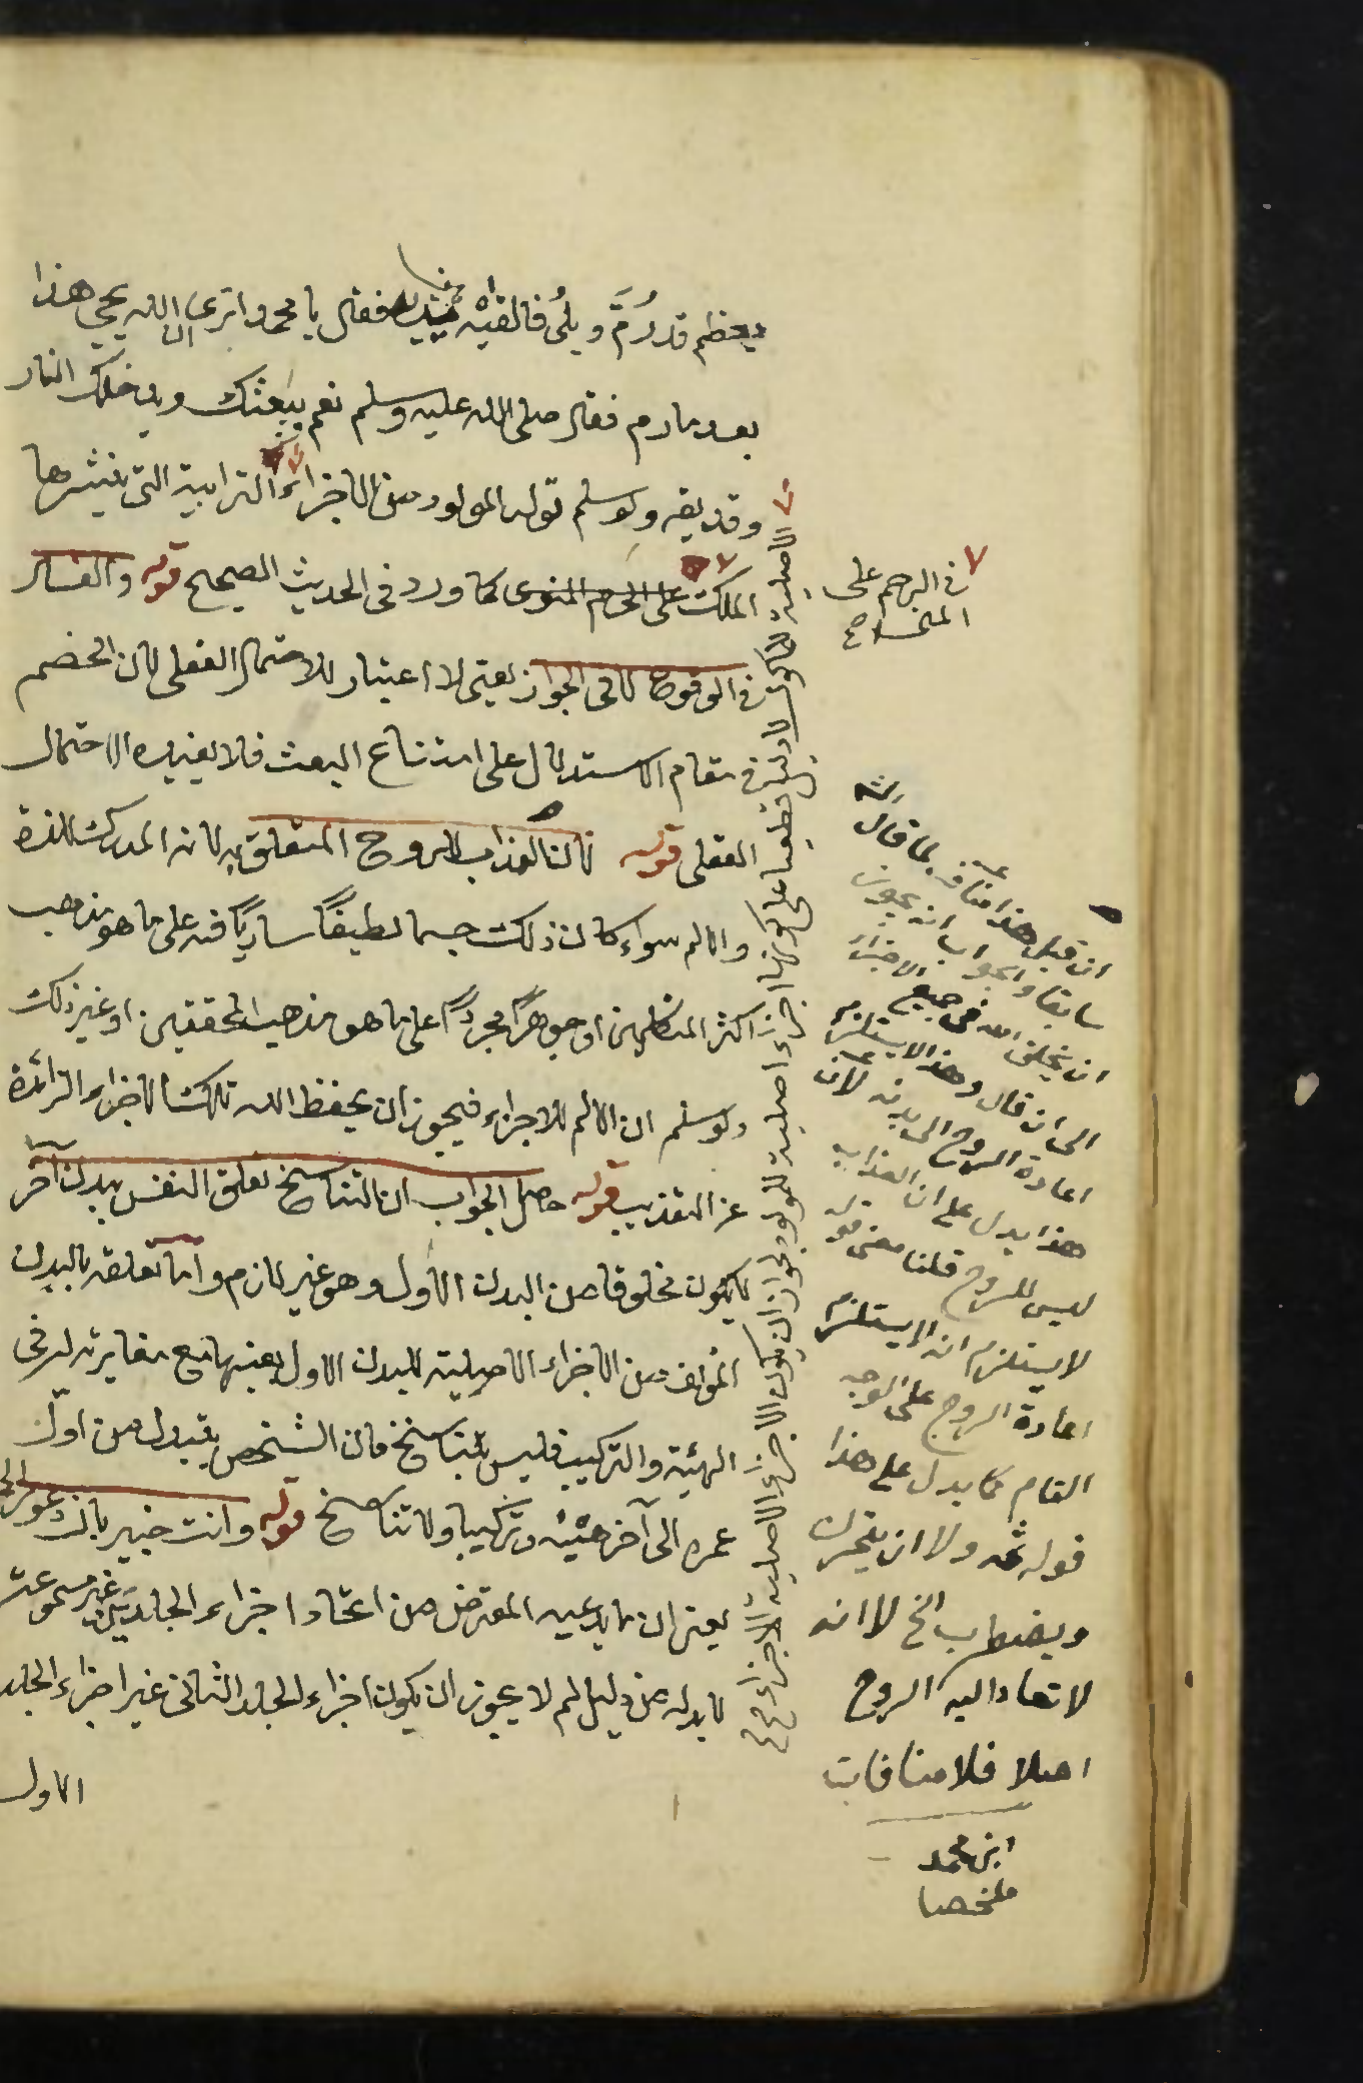 بعظم قد رُمَّ وبلي فالقيه بين يديه فقال يا محمد اترى ان الله يحيي هذا
بعد ما رم فقال صلى الله عليه وسلم نعم يبعثك ويدخلك النار
وقد يقه ولو سلم تولد المولود من الاجزاء الترابية التي ينثرها
الملك على الرحم المنوى كما ورد في الحديث الصحيح قوله والفساد
في الوقوع لا في الجواز يعني لا اعتبار للاحتمال العقلي لان الخصم
في مقام الاستدلال على امتناع البعث فلا يفيده الاحتمال
العقلي قوله لانا العذاب للروح المتعلق به لانه المدرك للذة
والالم سواء كان ذلك جسما لطيفًا ساريًا فيه على ما هو مذهب
اكثر المتكلمين او جوهرًا مجردًا على ما هو مذهب المحققين او غير ذلك
ولو سلم ان الالم للاجزاء فيجوز ان يحفظ الله تلك الاجزاء الزائدة
عن التعذيب قوله حاصل الجواب ان التناسخ تعلق النفس ببدن آخر
لا يكون مخلوقا من البدن الاول وهو غير لازم واما تعلقه بالبدن
المؤلف من الاجزاء الاصلية للبدن الاول بعينها مع مغايرته له في
الهيئة والتركيب فليس بتناسخ فان الشخص يتبدل من اول
عمره الى آخر هيئة وتركيبا ولا تناسخ قوله وانت خبير بان دعوى الخ
يعني ان ما يدعيه المعترض من اتحاد اجزاء الجلدين غير مسموعة
لا بد له من دليل لم لا يجوز ان يكون اجزاء الجلد الثاني غير اجزاء الجلد
الاول
الاصلية للماكول لا دليل قطعيا على كونها اجزاء اصلية للمولود لجواز ان يكون الاجزاء الاصلية الاجزاء
في الرحم على
ان قيل هذا مناف لما قال
سابقا والجواب انه يجوز
ان يخلق الله في جميع الاجزاء
الى ان قال وهذا لا يستلزم
اعادة الروح الى بدنه لان
هذا يدل على ان العذاب
ليس للروح قلنا معنى قوله
لا يستلزم انه لا يستلزم
اعادة الروح على الوجه
التام كما يدل على هذا
قوله ثمه ولا ان يتحرك
ويضطرب الخ لا انه
لا تعاد اليه الروح
اصلا فلا منافات
ابن محمد
ملخصا